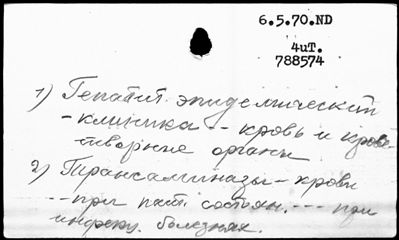 6.5.70.ND
4uT.
788574
1) Гепатит эпидемический
- клиника -- кровь и крове-
творные органы
2) Трансаминазы - крови
-- при пат. состоян. --- при
инфекц. болезнях.